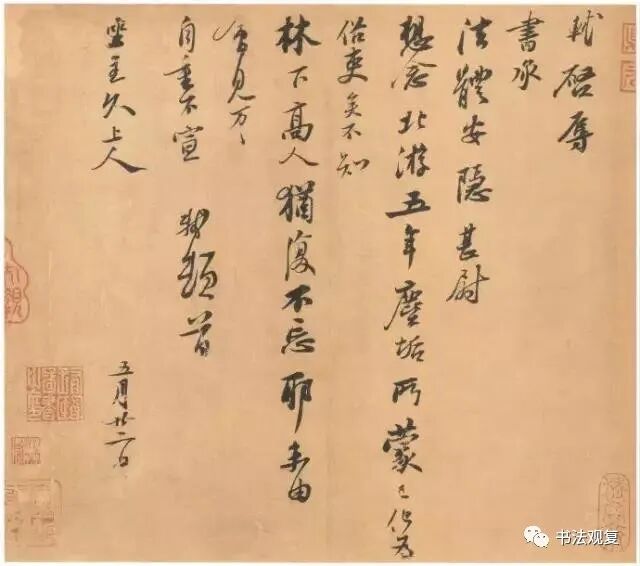 軾啓辱
書承
法體安隱甚尉
想念北游五年塵垢所蒙已化爲
俗吏矣不知
林下高人猶復不忘耶未由
會見万万
自重不宣 軾頓首
坐主久上人
五月廿二日
书法观复